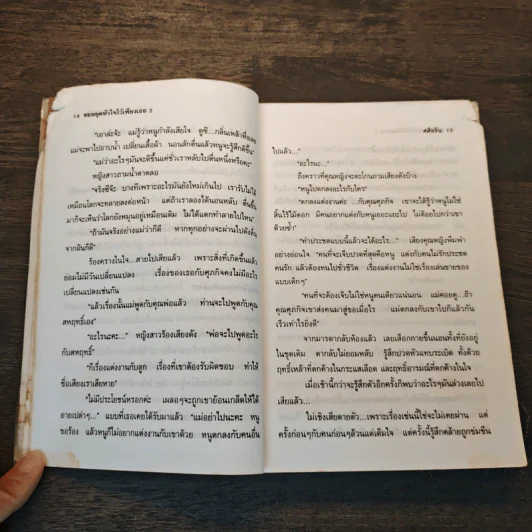 14 ขอหยุดหัวใจไว้เพียงเธอ 2
"เอาล่ะจ้ะ แม่รู้ว่าหนูกำลังเสียใจ ดูซิ...กลิ่นเหล้าทั้งนั้น
แม่จะพาไปอาบน้ำ เปลี่ยนเสื้อผ้า นอนสักตื่นแล้วหนูจะรู้สึกดีขึ้น"
"แม่ว่าอะไรๆมันจะดีขึ้นแค่ชั่วเราหลับไปตื่นหนึ่งหรือคะ"
หญิงสาวถามน้ำตาคลอ
"จริงซีจ๊ะ บางทีเพราะอะไรมันยังใหม่เกินไป เรารับไม่ได้
เหมือนโลกจะทลายลงต่อหน้า แต่ถ้าเราลองได้นอนหลับ ตื่นขึ้น
มาก็จะเห็นว่าโลกยังหมุนอยู่เหมือนเดิม ไม่ได้แตกทำลายไปไหน"
"ถ้ามันจริงอย่างแม่ว่าก็ดี หากทุกอย่างจะผ่านไปดังฝัน
จากฝันก็ดี"
ร้องครางในใจ...สายไปเสียแล้ว เพราะสิ่งที่เกิดขึ้นแล้ว
ย่อมไม่มีวันเปลี่ยนแปลง เรื่องของเธอกับศุภกิจคงไม่มีอะไร
เปลี่ยนแปลงเช่นกัน
"แล้วเรื่องนั้นแม่พูดกับคุณพ่อแล้ว ท่านจะไปพูดกับคุณ
สหฤทธิ์เอง"
"อะไรนะคะ..." หญิงสาวร้องเสียงดัง "พ่อจะไปพูดอะไร
กับสหฤทธิ์"
"ก็เรื่องแต่งงานกับลูก เรื่องที่เขาต้องรับผิดชอบ ทำให้
ชื่อเสียงเราเสียหาย"
"ไม่มีประโยชน์หรอกค่ะ เผลอๆจะถูกเขาย้อนเกล็ดให้ได้
อายเปล่าๆ..." แบบที่เธอเคยได้รับมาแล้ว "แม่อย่าไปนะคะ หนู
ขอร้อง แล้วหนูก็ไม่อยากแต่งงานกับเขาด้วย หนูตกลงกับคนอื่น
ศศิขริน 15
ไปแล้ว..."
"อะไรนะ..."
ถึงคราวที่คุณหญิงจะตะโกนถามเสียงดังบ้าง
"หนูไปตกลงอะไรกับใคร"
"ตกลงแต่งงานค่ะ ...กับคุณศุภกิจ เขาจะได้รู้ว่าหนูไม่ใช่
สิ้นไร้ไม้ตอก มีคนอยากแต่งกับหนูเยอะแยะไป ไม่ด้อยไปกว่าเขา
ด้วยซ้ำ"
"ทำประชดแบบนี้แล้วจะได้อะไร..." เสียงคุณหญิงพึมพำ
อย่างอ่อนใจ "คนที่จะเจ็บปวดที่สุดคือหนู แต่งกับคนไม่รักประชด
คนรัก แล้วต้องทนไปชั่วชีวิต เรื่องแต่งงานไม่ใช่เรื่องเล่นขายของ
แบบเด็กๆ"
"คนที่จะต้องเจ็บไม่ใช่หนูคนเดียวแน่นอน แม่คอยดู...ถ้า
คุณศุภกิจเขาส่งคนมาสู่ขอเมื่อไร แม่ตกลงกับเขาไปก็แล้วกัน
เร็วเท่าไรยิ่งดี"
จากมารดากลับห้องแล้ว เลยเลือกกายขึ้นนอนทั้งที่ยังอยู่
ในชุดเดิม ตากลับไม่ยอมหลับ รู้สึกปวดหัวแทบระเบิด ทั้งด้วย
ฤทธิ์เหล้าที่ตกค้างในกระแสเลือด และฤทธิ์อารมณ์ที่ตกค้างในใจ
เมื่อเช้านี้กว่าจะรู้สึกตัวอีกครั้งก็พบว่าอะไรๆมันล่วงเลยไป
เสียแล้ว...
ไม่เชิงเสียดายตัว...เพราะเรื่องเช่นนี้ใช่จะไม่เคยผ่าน แต่
ครั้งก่อนๆกับคนก่อนๆล้วนแต่เต็มใจ แต่ครั้งนี้รู้สึกคล้ายถูกข่มขืน